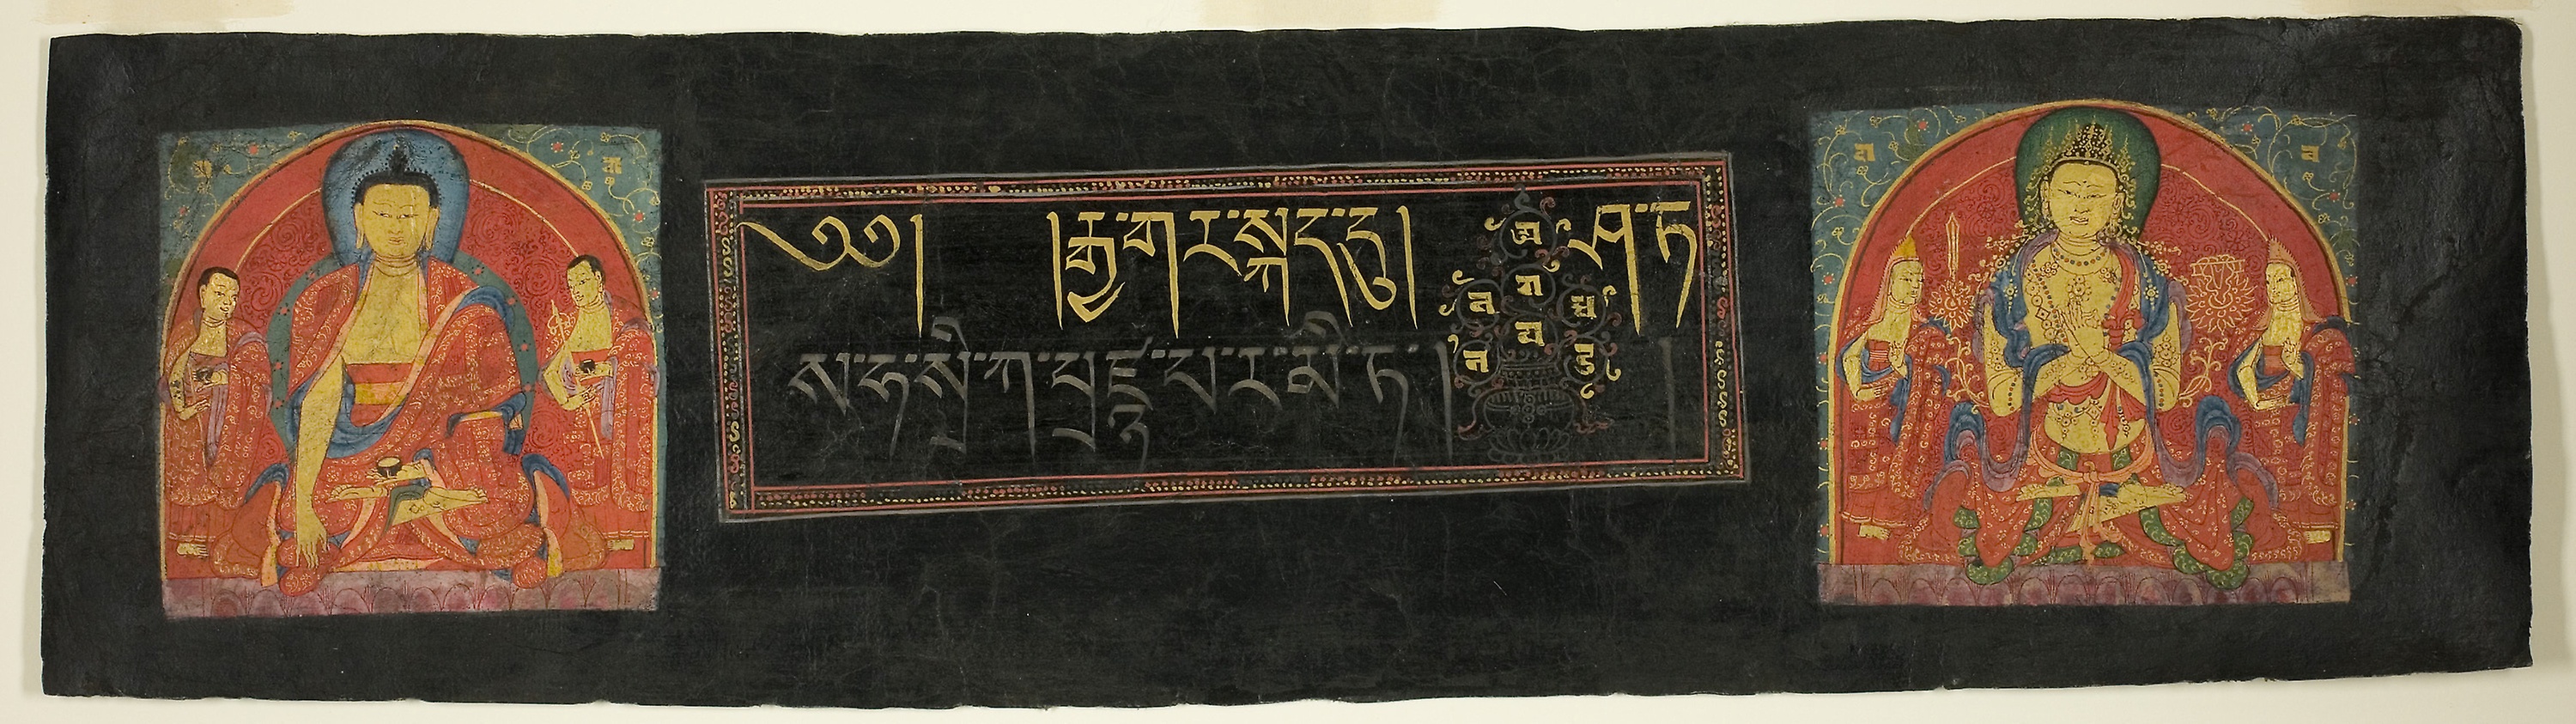 ༄༅། །རྒྱ་གར་སྐད་དུ། ཤ་ཏ
ས་ཧ་སྲི་ཀ་པྲ་ཛྙ་པ་ར་མི་ཏ་། །